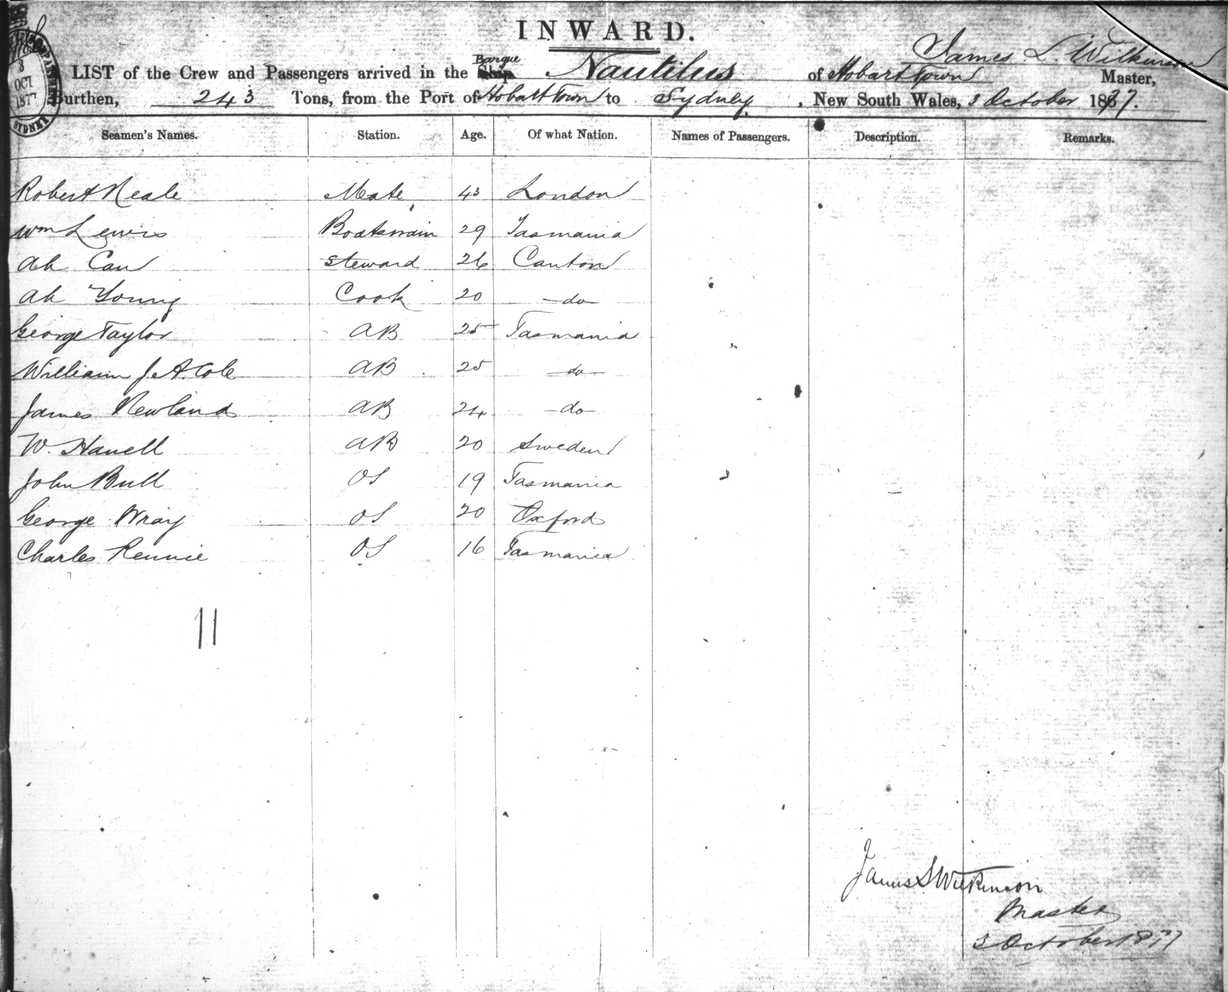 INWARD.
James S. Wilkinson
Barque
LIST of the Crew and Passengers arrived in the Ship Nautilus of Hobart Town Master,
Burthen, 243 Tons, from the Port of Hobart Town to Sydney, New South Wales, 3 October 1877.
3
OCT
1877
SYDNEY
Seamen's Names. Station. Age. Of what Nation. Names of Passengers. Description. Remarks.
Robert Neale Mate 43 London
Wm Lewis Boatswain 29 Tasmania
Ah Can Steward 26 Canton
Ah Young Cook 20 —do—
George Taylor AB 25 Tasmania
William J. A. Cole AB 25 —do—
James Newland AB 24 —do—
W. Hanell AB 20 Sweden
John Bull OS 19 Tasmania
George Wray OS 20 Oxford
Charles Rennie OS 16 Tasmania
11
James S Wilkinson
Master
3 October 1877